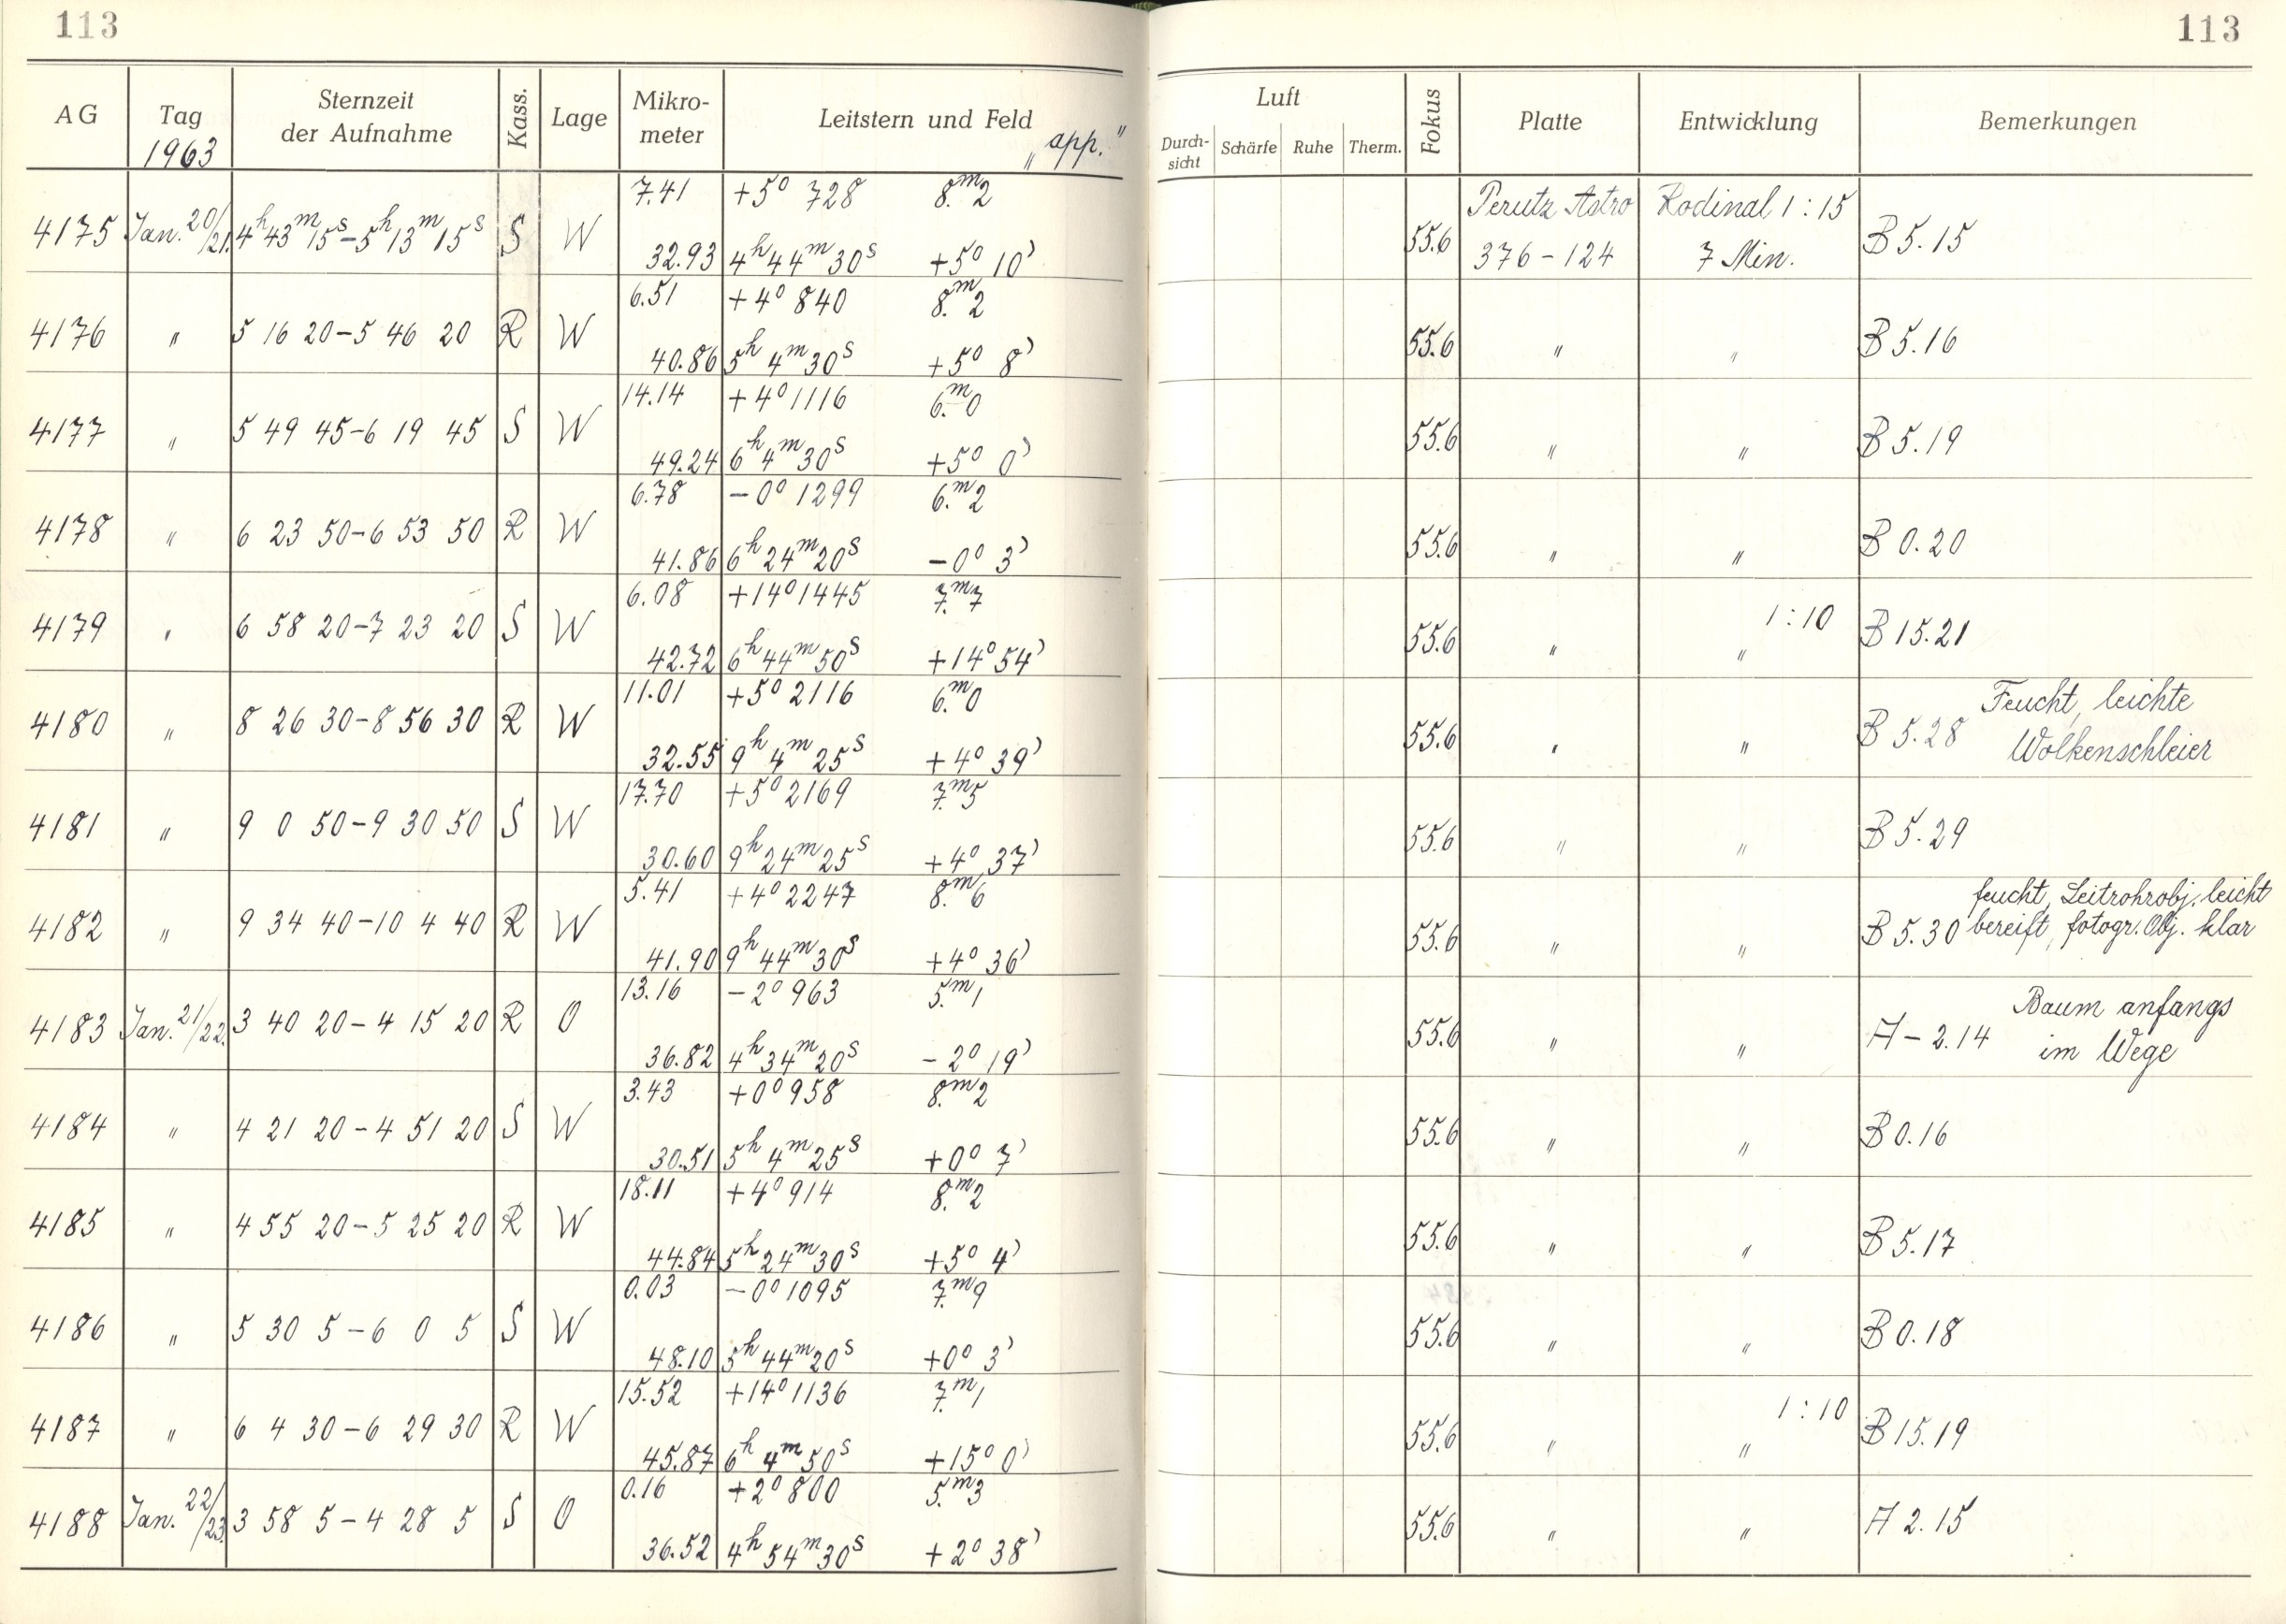 113
113
AG Tag 1963 Sternzeit der Aufnahme Kass. Lage Mikro-meter Leitstern und Feld „app."
Luft Durch-sicht Schärfe Ruhe Therm. Fokus Platte Entwicklung Bemerkungen
7.41 +5° 728 8.m2 Perutz Astro Rodinal 1:15
4175 Jan. 20/21. 4h43m15s–5h13m15s S W 55.6 B 5.15
32.93 4h44m30s +5° 10' 376–124 7 Min.
6.51 +4° 840 8.m2
4176 " 5 16 20–5 46 20 R W 55.6 " " B 5.16
40.86 5h 4m30s +5° 8'
14.14 +4° 1116 6.m0
4177 " 5 49 45–6 19 45 S W 55.6 " " B 5.19
49.24 6h 4m30s +5° 0'
6.78 –0° 1299 6.m2
4178 " 6 23 50–6 53 50 R W 55.6 " " B 0.20
41.86 6h24m20s –0° 3'
6.08 +14° 1445 7.m7 1:10
4179 " 6 58 20–7 23 20 S W 55.6 " " B 15.21
42.72 6h44m50s +14° 54'
11.01 +5° 2116 6.m0 Feucht, leichte
4180 " 8 26 30–8 56 30 R W 55.6 " " B 5.28 Wolkenschleier
32.55 9h 4m25s +4° 39'
17.70 +5° 2169 7.m5
4181 " 9 0 50–9 30 50 S W 55.6 " " B 5.29
30.60 9h24m25s +4° 37'
5.41 +4° 2247 8.m6 feucht, Leitrohrobj. leicht
4182 " 9 34 40–10 4 40 R W 55.6 " " B 5.30 bereift, fotogr. Obj. klar
41.90 9h44m30s +4° 36'
13.16 –2° 963 5.m1 Baum anfangs
4183 Jan. 21/22. 3 40 20–4 15 20 R O 55.6 " " A –2.14 im Wege
36.82 4h34m20s –2° 19'
3.43 +0° 958 8.m2
4184 " 4 21 20–4 51 20 S W 55.6 " " B 0.16
30.51 5h 4m25s +0° 7'
18.11 +4° 914 8.m2
4185 " 4 55 20–5 25 20 R W 55.6 " " B 5.17
44.84 5h24m30s +5° 4'
0.03 –0° 1095 7.m9
4186 " 5 30 5–6 0 5 S W 55.6 " " B 0.18
48.10 5h44m20s +0° 3'
15.52 +14° 1136 7.m1 1:10
4187 " 6 4 30–6 29 30 R W 55.6 " " B 15.19
45.87 6h 4m50s +15° 0'
0.16 +2° 800 5.m3
4188 Jan. 22/23. 3 58 5–4 28 5 S O 55.6 " " A 2.15
36.52 4h54m30s +2° 38'